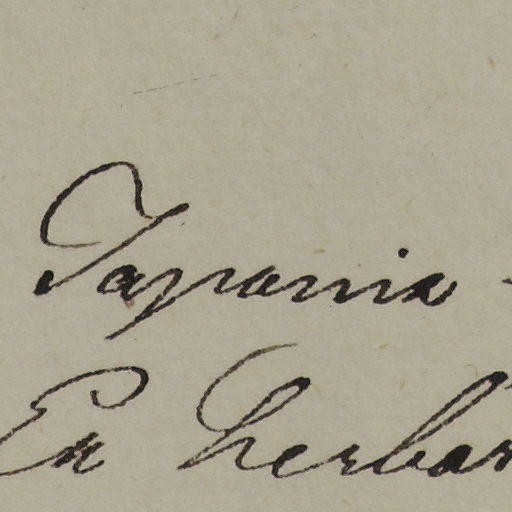 Japonia -
Ex herbar